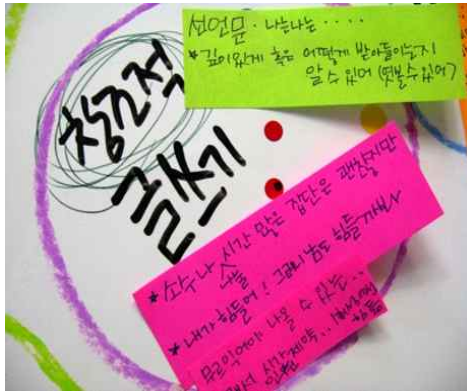 창조적
글쓰기
선언문. 나는나는 ....
* 깊이있게 혹은 어떻게 받아들이는지
알 수 있어 (엿볼수있어)
* 소수나 시간 많은 집단은 괜찮지만
* 내가 힘들어! 그런데 남도 힘들
나올 수 있는...
시간제약..